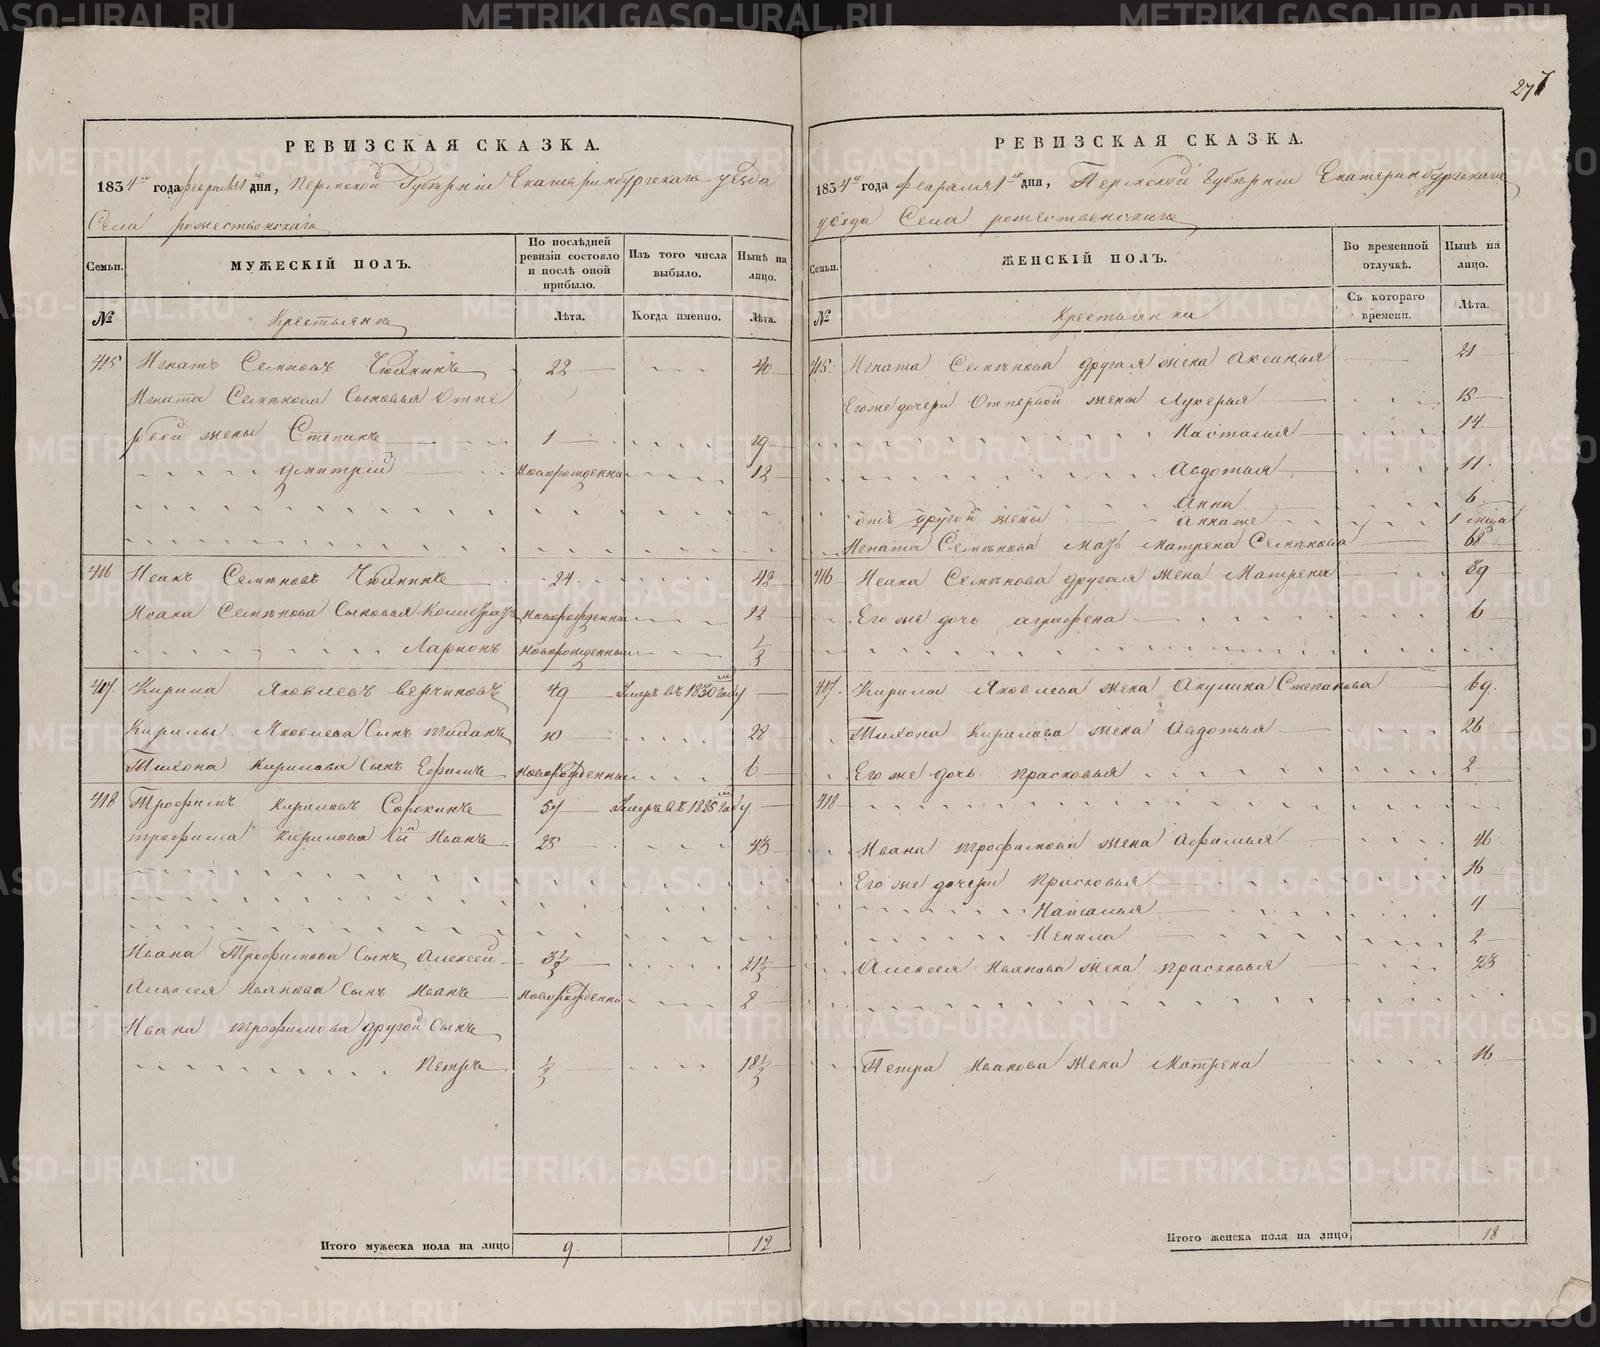 277
РЕВИЗСКАЯ СКАЗКА.
1834го года февраля 1 дня, Пермской Губернiи Екатеринбургскаго уезда
Села рожественскаго
Семьи.
МУЖЕСКIЙ ПОЛЪ.
По послѣдней ревизiи состояло и послѣ оной прибыло.
Изъ того числа выбыло.
Нынѣ на лицо.
№
Крестьяна
Лѣта.
Когда именно.
Лѣта.
415 Игнатъ Семеновъ 22 40
Игната Семенова Сыновья Отпе
рвой жены Степанъ 1 19
Дмитрiй Новорожденны 12
416 Исакъ Семеновъ 24 42
Исака Семенова Сыновья Новорожденны 12
Ларионъ новорожденныи 1/2
417. Кирила Яковлевъ 49 Умеръ въ 1830 году
Кирилы Яковлева Сынъ тиханъ 10 28
Тихона Кирилова Сынъ Ефимъ Новорожденныи 6
418 Трофимъ Кириловъ Сорокинъ 57 Умеръ въ 1825 году
трофима Кирилова Сынъ Иванъ 25 43
Ивана Трофимова Сынъ Алексеи 3 1/2 21 1/2
Алексея Иванова Сынъ Иванъ новорожденны 2
Ивана трофимова другой Сынъ
Петръ 1/2 18 1/2
Итого мужеска пола на лицо 9. 12
РЕВИЗСКАЯ СКАЗКА.
1834го года февраля 1го дня, Пермской Губернiи Екатеринбургскаго
уезда Села рожественскаго
Семьи.
ЖЕНСКIЙ ПОЛЪ.
Во временной отлучкѣ.
Нынѣ на лицо.
№
Крестьянки
Съ котораго времени.
Лѣта.
415. Игната Семенова другая жена Аксинья 21
Егоже дочери Отпервой жены Лукерья 18
Насталья 14
Авдотья 11.
Анна 6
отъ другой жены Аннаже
Игната Семенова Мать Матрена Семенова 68
416 Исака Семенова другая жена Матрена 39
Его же дочь аграфена 6
417. Кирилы Яковлева жена Акулина Степанова 69.
Тихона Кирилова жена Авдотья 26
Его же дочь прасковья 2
418
Ивана трофимова жена Афимья 46
Его же дочери Прасковья 16
Наталья 4
Ненила 2
Алексея Иванова жена прасковья 23
Петра Иванова жена Матрена 16
Итого женска пола на лицо 18
METRIKI.GASO-URAL.RU